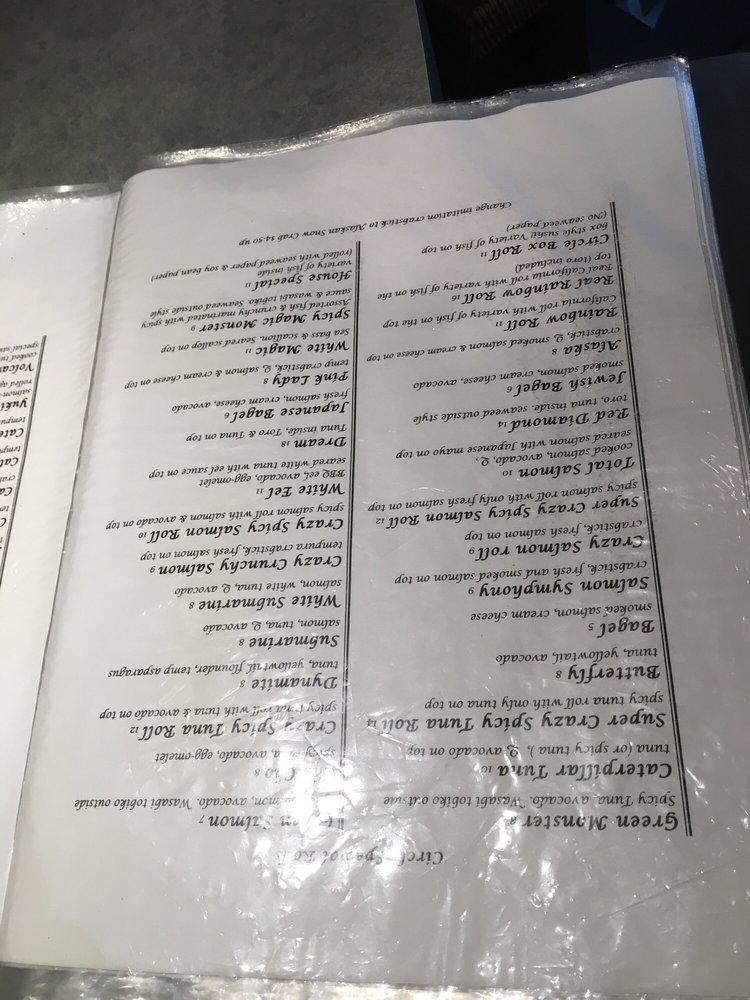 Green Monster 8
Spicy Tuna, avocado. Wasabi tobiko outside
Caterpillar Tuna 10
tuna (or spicy tuna), Q, avocado on top
Super Crazy Spicy Tuna Roll 14
spicy tuna roll with only tuna on top
Butterfly 8
tuna, yellowtail, avocado
Bagel 5
smoked salmon, cream cheese
Salmon Symphony 9
crabstick, fresh and smoked salmon on top
Crazy Salmon roll 9
crabstick, fresh salmon on top
Super Crazy Spicy Salmon Roll 12
spicy salmon roll with only fresh salmon on top
Total Salmon 10
cooked salmon, avocado, Q,
seared salmon with Japanese mayo on top
Red Diamond 14
toro, tuna inside, seaweed outside style
Jewish Bagel 6
smoked salmon, cream cheese, avocado
Alaska 8
crabstick, Q, smoked salmon & cream cheese on top
Rainbow Roll 11
California roll with variety of fish on the top
Real Rainbow Roll 16
Real California roll with variety of fish on the
top (toro included)
Circle Box Roll 11
box style sushi; Variety of fish on top
(No seaweed paper)
Salmon 7
avocado. Wasabi tobiko outside
8
spicy avocado, egg-omelet
Crazy Spicy Tuna Roll 12
spicy tuna roll with tuna & avocado on top
Dynamite 8
tuna, yellowtail, flounder, temp asparagus
Submarine 8
salmon, tuna, Q, avocado
White Submarine 8
salmon, white tuna, Q, avocado
Crazy Crunchy Salmon 9
tempura crabstick, fresh salmon on top
Crazy Spicy Salmon Roll 10
spicy salmon roll with salmon & avocado on top
White Eel 11
BBQ eel, avocado, egg-omelet
seared white tuna with eel sauce on top
Dream 18
Tuna inside, Toro & Tuna on top
Japanese Bagel 6
fresh salmon, cream cheese, avocado
Pink Lady 8
temp crabstick, Q, salmon & cream cheese on top
White Magic 11
Sea bass & salmon. Seared scallop on top
Spicy Magic Monster 9
Assorted fish & crunchy marinated with spicy
sauce & wasabi tobiko. Seaweed outside
House Special 11
variety of fish inside
(rolled with seaweed paper & soy bean paper)
Change imitation crabstick to Alaskan Snow Crab $4.50 up
Yuki
rolled
cooked
special